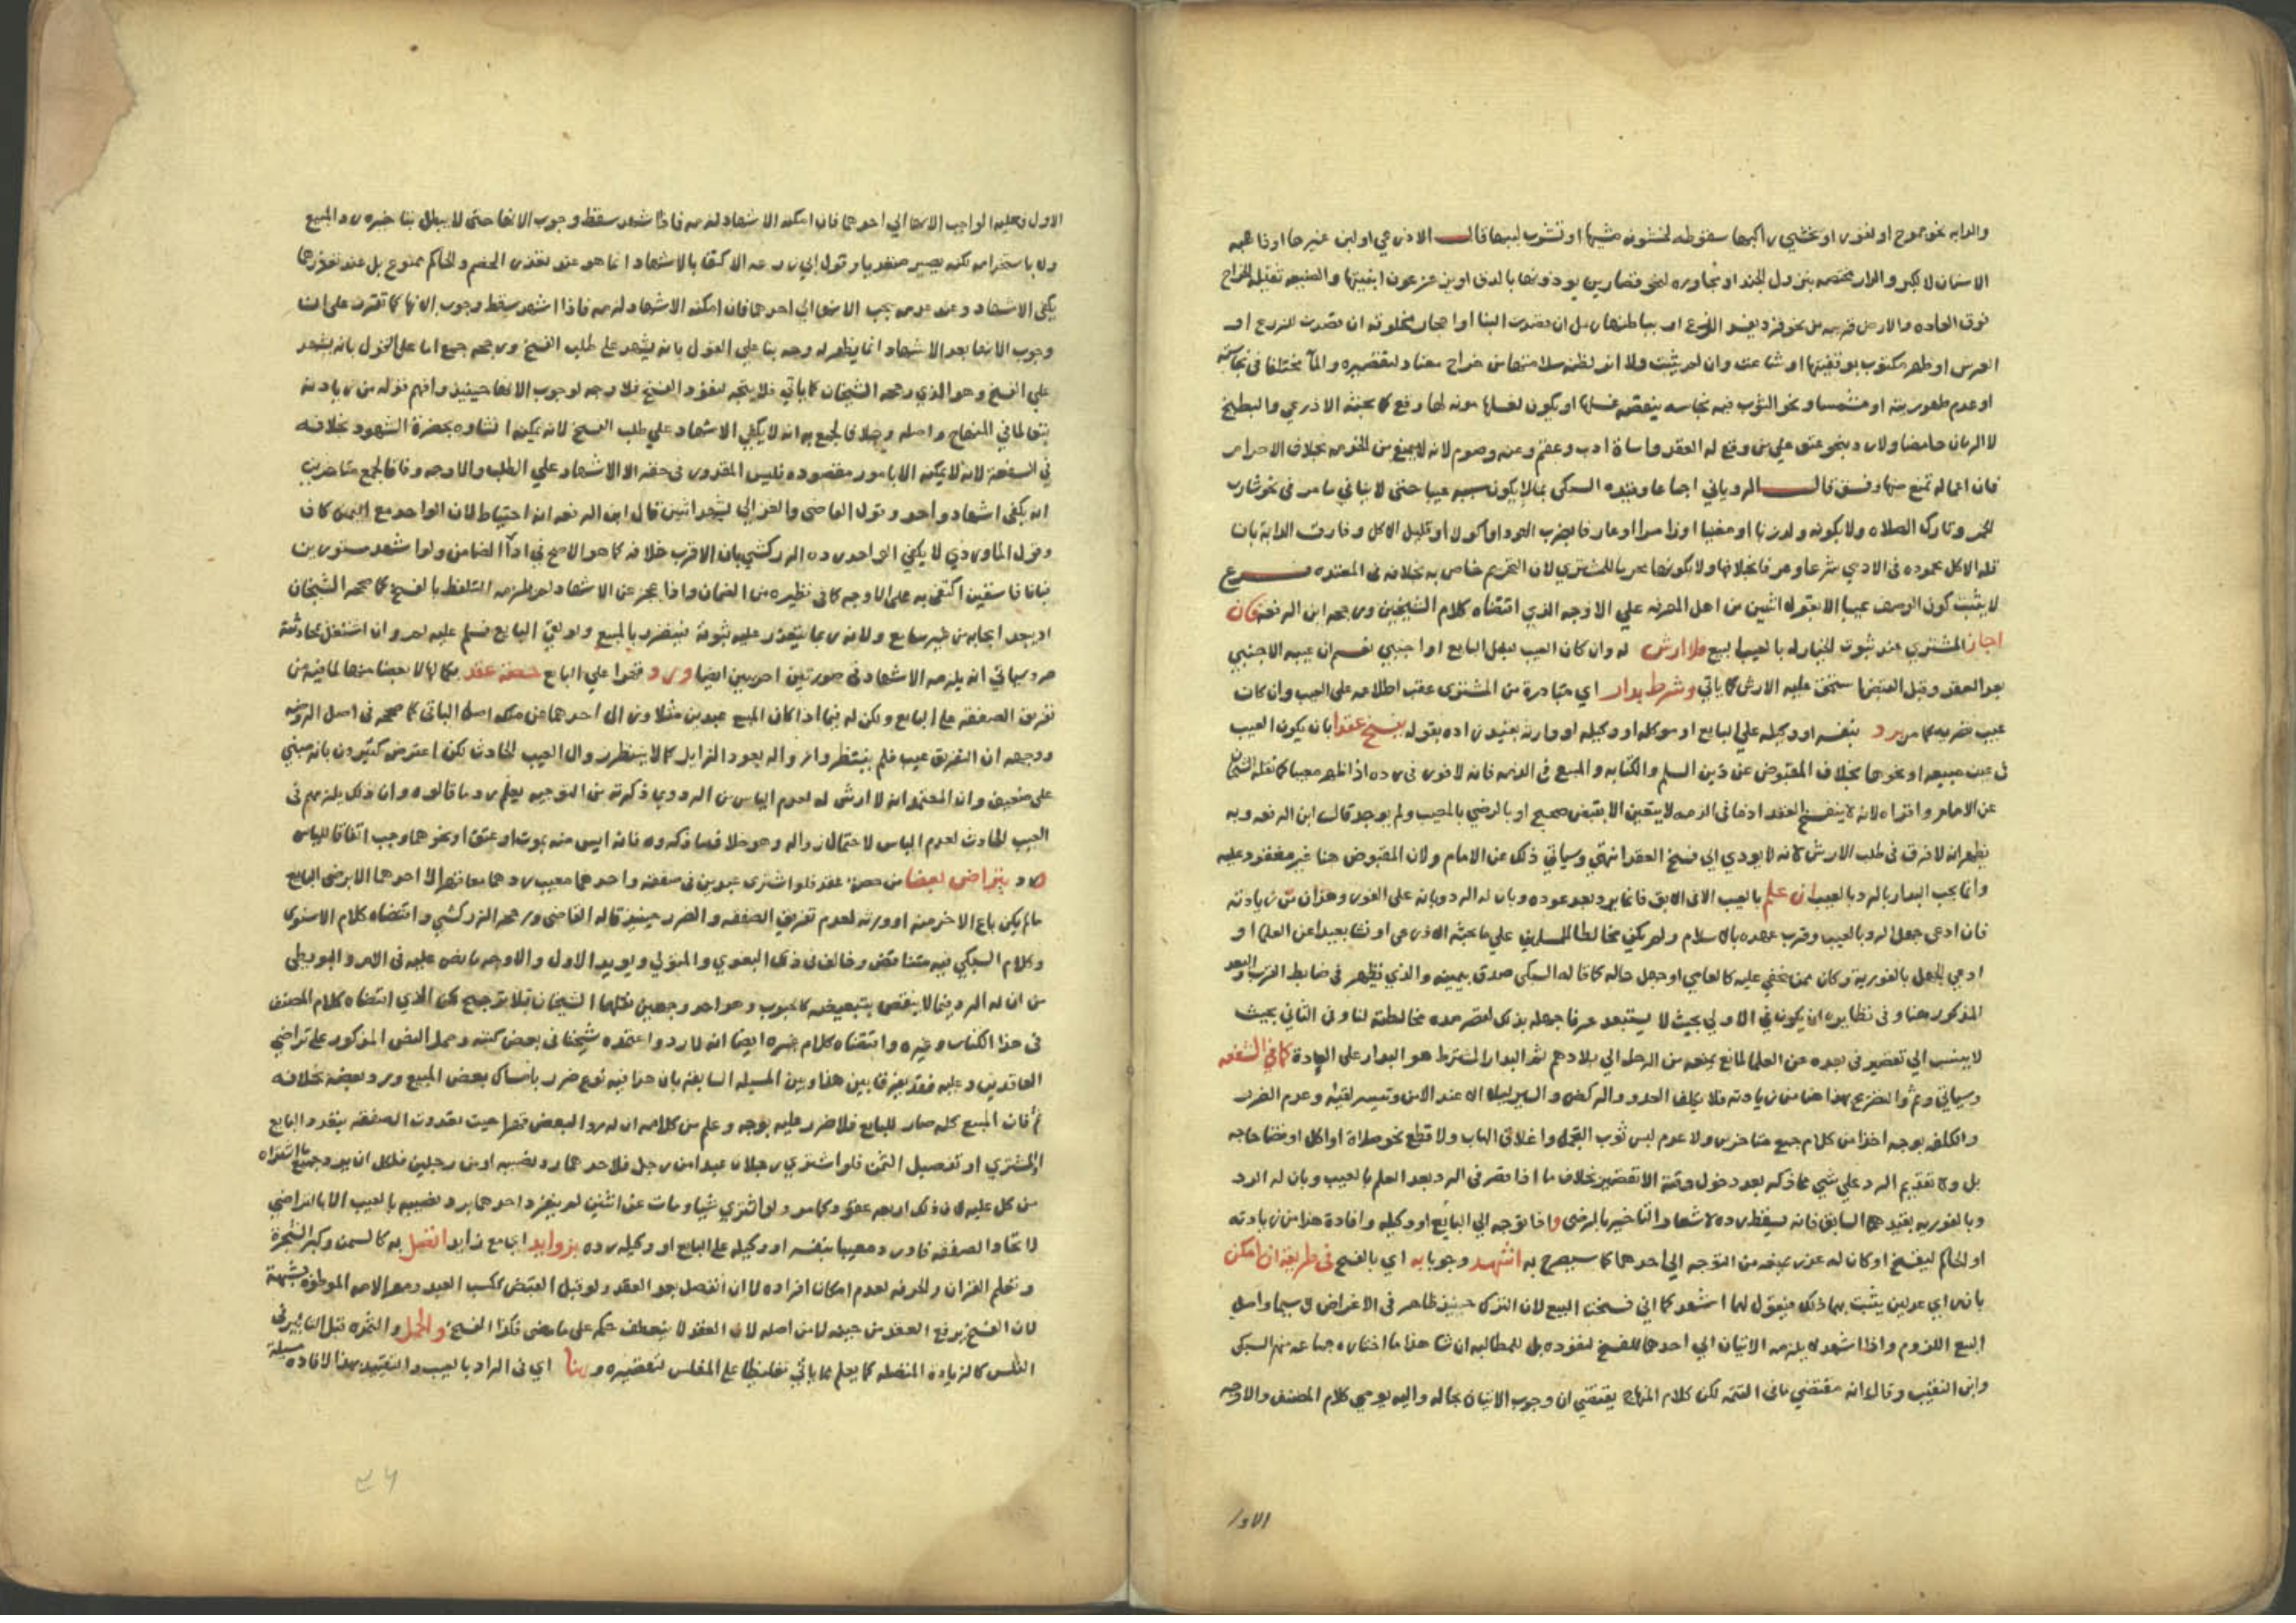 والدابه نحو جموح او نفور او يخشي راكبها سقوطه لخشونه مشيها او تشرب لبنها قال الاذرعي او لبن غيرها اوذاهبه
الاسنان لا لكبر والدار مختصه بنزول الجند او مجاوره لنحو قصارين يوذونها بالدق او يزعزعون ابنيتها والضيعه ثقيله الخراج
فوق العاده والارض قربها نحو قرد يفسد الزرع او بباطنها رمل ان قصدت البنا او احجار مخلوقه ان قصدت للزرع او
الغرس او ظهر مكتوب بوقفيتها او شاعت وان لم يثبت ولا اثر لظنه سلامتها من خراج معتاد لتقصيره والمآ مختلفا في نجاسته
او عدم طهوريته او مشمسا ونحو الثوب فيه نجاسه ينقصه غسلها او يكون لغسلها مونه لها وقع كما بحثه الاذرعي والبطيخ
لا الرمان حامضا ولا رد بنحو عتق علي من وقع له العقد واساة ادب وعقم وعنه وصوم لانه لا يمنع من الخدمه بخلاف الاحرام
فان اعماله تمنع منها وفسق قال الروياني اجماعا وقيده السبكي بما لا يكون سببه عيبا حتى لا ينافي ما مر في نحو شارب
الخمر وتارك الصلاه ولا بكونه ولد زنا او مغنيا او زامرا او عارفا بضرب العود او اكولا او قليل الاكل وفارقت الدابة بان
قله الاكل محموده في الادمي شرعا وعرفا بخلافها ولا بكونها محرما للمشتري لان التحريم خاص به بخلافه في المعتده فرع
لا يثبت كون الوصف عيبا الا بقول اثنين من اهل المعرفه علي الاوجه الذي اقتضاه كلام الشيخين ورجحه ابن الرفعه فان
اجاز المشتري عند ثبوت الخيار له بالعيب البيع فلا ارش له وان كان العيب بفعل البايع او اجنبي نعم ان عيبه الاجنبي
بعد العقد وقبل القبض استحق عليه الارش كما ياتي وشرط بدار اي مبادرة من المشتري عقب اطلاعه على العيب وان كان
عيب بضربه كما مر برد بنفسه او وكيله علي البايع او موكله او وكيله او وارثه بعيد زاده بقوله بفسخ عقد بان يكون العيب
في عين مبيعه او نحوها بخلاف المقبوض عن دين السلم والكتابه والمبيع في الذمه فانه لا فور في رده اذا ظهر معيبا كما نقله الشيخان
عن الامام واقراه لانه لا ينفسخ العقد اذ ما في الذمه لا يتعين الا بقبض صحيح او بالرضي بالمعيب ولم يوجد قال ابن الرفعه وبه
يظهر انه لا فرق في طلب الارش لانه لا يودي الي فسخ العقد انتهي وسياتي ذلك عن الامام ولان المقبوض هنا غير معقود عليه
وانما يجب البدار بالرد بالعيب ان علم بالعيب الا في الابق فانما يرد بعد عوده وبان له الرد وبانه على الفور وهذان من زيادته
فان ادعى جهل الرد بالعيب وقرب عهده بالاسلام ولم يكن مخالطا للمسلمين علي ما بحثه الاذرعي او نشا بعيدا عن العلما او
ادعي الجهل بالفورية وكان ممن يخفي عليه كالعامي او جهل حاله كما قاله السبكي صدق بيمينه والذي يظهر في ضابط القرب والبعد
المذكور هنا وفي نظايره ان يكون في الاولي بحيث لا يستبعد عرفا جهله بذلك لقصر مده مخالطته لنا وفي الثاني بحيث
لا ينسب الي تقصير في بعده عن العلما لمانع يمنعه من الرحله الي بلادهم ثم البدار المشترط هو البدار على العادة كما في الشفعه
وسياتي ثم والتفريع بهذا هنا من زيادته فلا يكلف العدو والركض والسير ليلا الا عند الامن وتيسر لقيه وعدم الضرر
والكلفه بوجه اخذا من كلام جمع متاخرين ولا عدم لبس ثوب التجمل واغلاق الباب ولا قطع نحو صلاة او اكل او قضا حاجه
بل ولا تقديم الرد علي شي مما ذكر بعد دخول وقته الا تقصير بخلاف ما اذا قصر في الرد بعد العلم بالعيب وبان له الرد
وبالفوريه بقيدهما السابق فانه يسقط رده لاشعار التاخير بالرضى واذا توجه الي البايع او وكيله وافادة هذا من زيادته
او الحاكم ليفسخ او كان له عذر يمنعه من التوجه الي احدهما كما سيصرح به اشهد وجوبا به اي بالفسخ في طريقه ان امكن
بان راي عدلين يثبت بهما ذلك فيقول لهما اشهدكما اني فسخت البيع لان الترك حينيذ ظاهر في الاعراض لا سيما واصل
البيع اللزوم واذا اشهد لا يلزمه الاتيان الي احدهما للفسخ لنفوذه بل للمطالبه ان شا هذا ما اختاره جماعه منهم السبكي
وابن النقيب وقال انه مقتضي ما في التتمه لكن كلام المنهاج يقتضي ان وجوب الاتيان بحاله واليه يومي كلام المصنف والاوجه
الاول
الاول وعليه الواجب الانها الي احدهما فان امكنه الاشهاد لزمه فاذا شهد سقط وجوب الانها حتى لا يبطل بتاخيره رد المبيع
ولا باستخدامه لكنه يصير متعديا وقول ابن الرفعه الاكتفا بالاشهاد انما هو عند تعذر الخصم والحاكم ممنوع بل عند تعذرهما
يكفي الاشهاد وعند عدمه يجب الانها الي احدهما فان امكنه الاشهاد لزمه فاذا اشهد سقط وجوب الانها كما تقرر على ان
وجوب الانها بعد الاشهاد انما يظهر له وجه بنا علي القول بانه يشهد على طلب الفسخ ورجحه جمع اما على القول بانه يشهد
علي الفسخ وهو الذي رجحه الشيخان كما ياتي فلا يتجه لنفوذ الفسخ فلا وجه لوجوب الانها حينيذ وافهم قوله من زيادته
تبعا لما في المنهاج واصله وخلافا لجمع به انه لا يكفي الاشهاد علي طلب الفسخ لانه يمكنه انشاوه بحضرة الشهود بخلافه
في الشفعة لانه لا يمكنه الا بامور مقصوده فليس المقدور في حقه الا الاشهاد علي الطلب والاوجه وفاقا لجمع متاخرين
انه يكفي اشهاد واحد وقول القاضي والغزالي يشهد اثنين قال ابن الرفعه انه احتياط لان الواحد مع اليمين كاف
وقول الماوردي لا يكفي الواحد رده الزركشي بان الاقرب خلافه كما هو الاصح في ادآ الضامن ولو اشهد مستورين
فبانا فاسقين اكتفى به على الاوجه كما في نظيره من الضمان واذا عجز عن الاشهاد لم يلزمه التلفظ بالفسخ كما صححه الشيخان
اذ يبعد ايجابه من غير سامع ولانه ربما يتعذر عليه ثبوته فيتضرر بالمبيع ولو لقي البايع فسلم عليه لم وان اشتغل بمحادثته
ضر وسياتي انه يلزمه الاشهاد في صورتين اخريين ايضا ورد قهرا علي البايع صفقة عقد بكمالها لا بعضا منها لما فيه من
تفريق الصفقه على البايع ولكن له فيما اذا كان المبيع عبدين مثلا وزال احدهما عن ملكه امسك الباقي كما صححه في اصل الروضه
ووجهه ان التفريق عيب فلم ينتظر زواله بعود الزايل كما لا ينتظر زوال العيب الحادث لكن اعترض كثيرون بانه مبني
على ضعيف وان المعتمد انه لا ارش له لعدم الياس من الرد وبما ذكرته من التوجيه يعلم رد ما قالوه وان ذلك يلزمهم في
العيب الحادث لعدم الياس لاحتمال زواله وهو خلاف ما ذكروه فان ايس منه بموت او عتق او نحوهما وجب اتفاقا للياس
ورد بتراضي بعضا من صفقة عقد فلو اشترى عبدين في صفقه واحدهما معيب ردهما معا قهرا لا احدهما الا برضى البايع
ما لم يكن باع الاخر منه او ورثه لعدم تفريق الصفقه والضرر حينيذ قاله القاضي ورجحه الزركشي واقتضاه كلام الاسنوي
وكلام السبكي فيه متناقض وخالف في ذلك البغوي والمتولي ويويد الاول والاوجه ما نص عليه في الام والبويطي
من ان له الرد فيما لا ينقص بتبعيضه كالحبوب وهو احد وجهين نقلهما الشيخان بلا ترجيح لكن الذي اقتضاه كلام المصنف
في هذا الكتاب وغيره واقتضاه كلام غيره ايضا انه لا رد واعتمده شيخنا في بعض كتبه وحمل النص المذكور على تراضي
العاقدين وعليه فقد يفرق بين هذا وبين المسيله السابقه بان هذا فيه نوع ضرر بامساك بعض المبيع ورد بعضه بخلافه
ثم فان المبيع كله صار للبايع فلا ضرر عليه بوجه وعلم من كلامه ان له رد البعض قهرا حيث تعددت الصفقه بتعدد البايع
او المشتري او تفصيل الثمن فلو اشترى رجلان عبدا من رجل فلاحدهما رد نصيبه او من رجلين فلكل ان يرد جميع ما اشتراه
من كل عليه لان ذلك اربعه عقود كما مر ولو اشترى شيا ومات عن اثنين لم ينفرد احدهما برد نصيبه بالعيب الا بالتراضي
لاتحاد الصفقه فان رد معيبها بنفسه او وكيله على البايع او وكيله رده بزوايد اي مع زايد اتصل به كالسمن وكبر الشجرة
وتعلم القران والحرفه لعدم امكان افراده لا ان انفصل بعد العقد ولو قبل القبض ككسب العبد ومهر الامه الموطوة بشبهة
لان الفسخ يرفع العقد من حينه لا من اصله لان العقد لا ينعطف حكمه على ما مضى فكذا الفسخ والحمل والثمره قبل التابير في
الفلس كالزيادة المتصله كما يعلم مما ياتي تغليظا على المفلس لتقصيره وهنا اي في الرد بالعيب والتقييد بهذا لافاده مسيلة